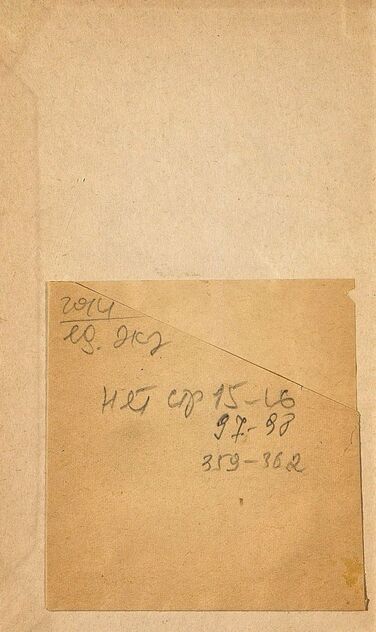 2014
ед. экз
Нет стр 15-16
97-98
359-362